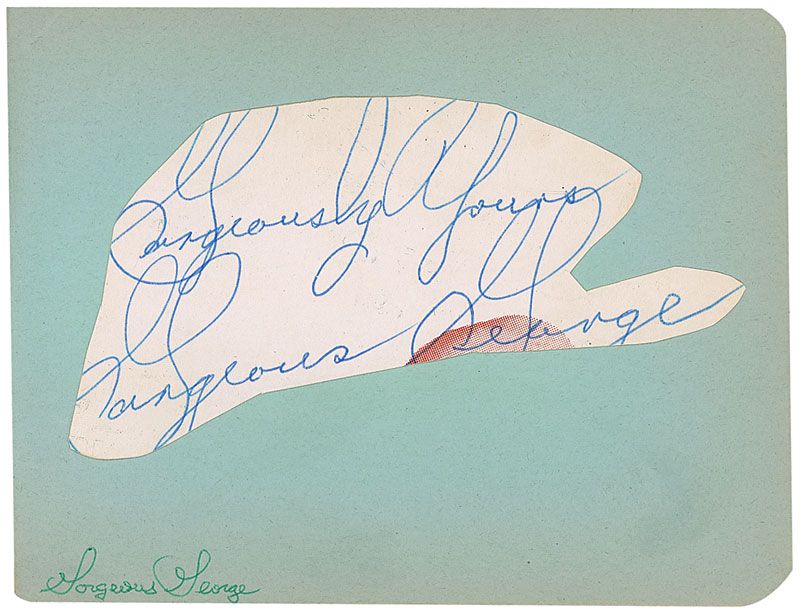 Gorgeously Yours
Gorgeous George
Gorgeous George